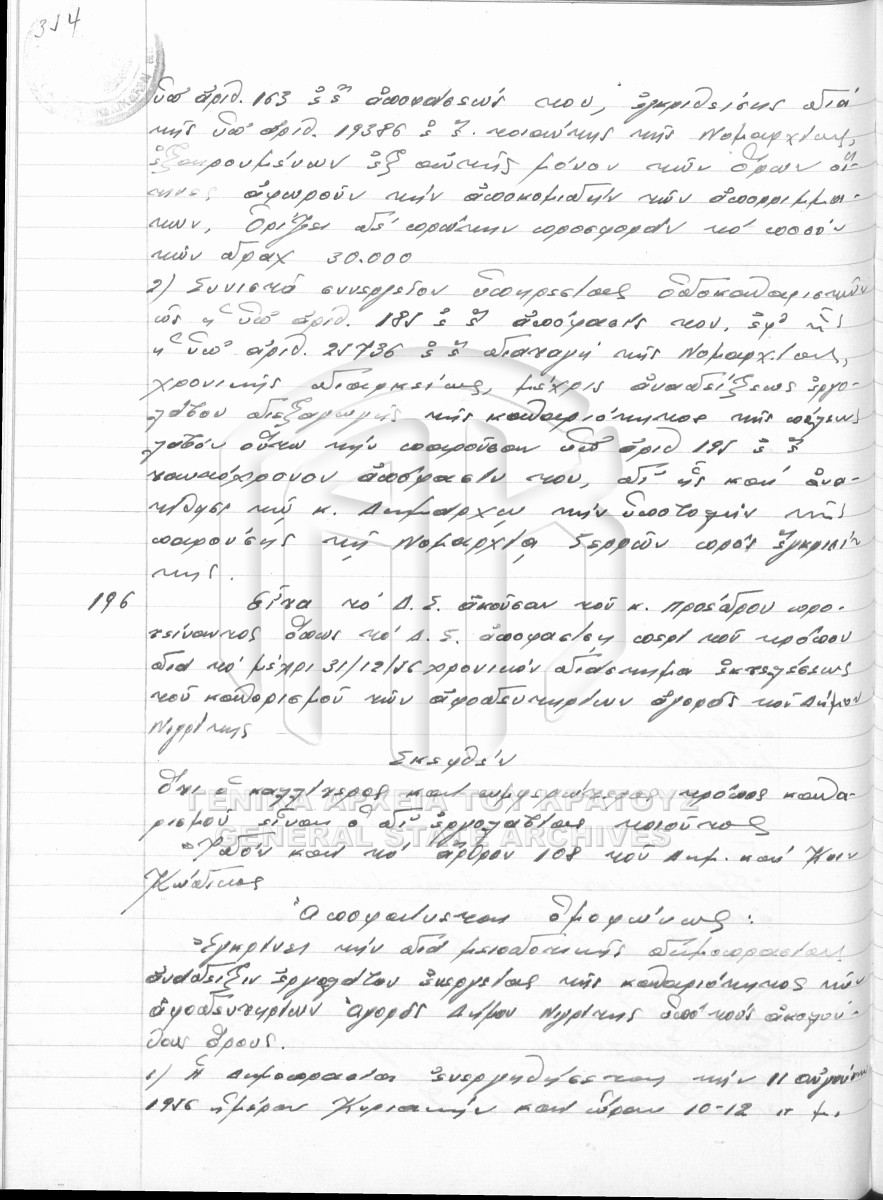 314
ὑπ' ἀριθ. 163 ἐ.ἔ. ἀποφάσεώς του, ἐγκριθείσης διὰ
τῆς ὑπ' ἀριθ. 19386 ἐ.ἔ. τοιαύτης τῆς Νομαρχίας,
ἐξαιρουμένων ἐξ αὐτῆς μόνον τῶν ὅρων οἵ-
τινες ἀφωροῦν τὴν ἀποκομιδὴν τῶν ἀπορριμμά-
των, Ὁρίζει δὲ πρώτην προσφορὰν τὸ ποσὸν
τῶν δραχ 30.000
2) Συνιστᾶ συνεργεῖον ὑπηρεσίας ὁδοκαθαριστῶν
ὡς ἡ ὑπ' ἀριθ. 181 ἐ.ἔ. ἀπόφασίς του, ἐφ' ἧς
ἡ ὑπ' ἀριθ. 21736 ἐ.ἔ. διαταγὴ τῆς Νομαρχίας,
χρονικῆς διαρκείας, μέχρις ἀναδείξεως ἐργο-
λάβου διεξαγωγῆς τῆς καθαριότητος τῆς πόλεως
λαβὸν οὕτω τὴν παροῦσαν ὑπ' ἀριθ 195 ἐ.ἔ.
ταυτόχρονον ἀπόφασίν του, δι' ἧς καὶ ἀνα-
τίθησι τῷ κ. Δημάρχῳ τὴν ὑποβολὴν τῆς
παρούσης τῇ Νομαρχίᾳ Σερρῶν πρὸς ἔγκρισί-
της.
196 Εἶτα τὸ Δ.Σ. ἀκοῦσαν τοῦ κ. Προέδρου προ-
τείναντος ὅπως τὸ Δ.Σ. ἀποφασίσῃ περὶ τοῦ τρόπου
διὰ τὸ μέχρι 31/12/56 χρονικὸν διάστημα ἐκτελέσεως
τοῦ καθαρισμοῦ τῶν ἀφοδευτηρίων ἀγορᾶς τοῦ Δήμου
Νιγρίτης
Σκεφθὲν
Ὅτι ὁ καλλίτερος καὶ συμφερώτερος τρόπος καθα-
ρισμοῦ εἶναι ὁ δι' ἐργολαβίας τοιοῦτος
Ἰδὸν καὶ τὸ ἄρθρον 108 τοῦ Δημ. καὶ Κοιν
Κώδικος
Ἀποφαίνεται ὁμοφώνως:
Ἐγκρίνει τὴν διὰ μειοδοτικῆς δημοπρασίας
ἀνάδειξιν ἐργολάβου ἐνεργείας τῆς καθαριότητος τῶν
ἀφοδευτηρίων Ἀγορᾶς Δήμου Νιγρίτης ὑπὸ τοὺς ἀκολού-
θους ὅρους.
1) Ἡ Δημοπρασία ἐνεργηθήσεται τὴν 11 αὐγούστου
1956 ἡμέραν Κυριακὴν καὶ ὥραν 10-12 π.μ.
ΓΕΝΙΚΑ ΑΡΧΕΙΑ ΤΟΥ ΚΡΑΤΟΥΣ
GENERAL STATE ARCHIVES